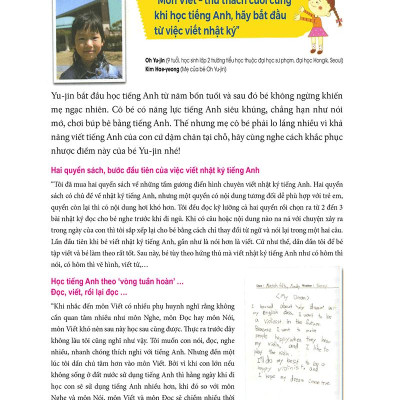 "Môn Viết - thử thách cuối cùng
khi học tiếng Anh, hãy bắt đầu
từ việc viết nhật ký"
Oh Yu-jin (9 tuổi, học sinh lớp 2 trường tiểu học thuộc đại học sư phạm, đại học Hongik, Seoul)
Kim Hae-yeong (Mẹ của bé Oh Yu-jin)
Yu-jin bắt đầu học tiếng Anh từ năm bốn tuổi và sau đó bé không ngừng khiến
mẹ ngạc nhiên. Cô bé có năng lực tiếng Anh siêu khủng, chẳng hạn như nói
mớ, chơi búp bê bằng tiếng Anh. Thế nhưng mẹ cô bé phải lo lắng nhiều vì khả
năng viết tiếng Anh của con cứ dậm chân tại chỗ, hãy cùng nghe cách khắc phục
nhược điểm này của bé Yu-jin nhé!
Hai quyển sách, bước đầu tiên của việc viết nhật ký tiếng Anh
"Tôi đã mua hai quyển sách về những tấm gương điển hình chuyên viết nhật ký tiếng Anh. Hai quyển
sách có chủ đề về nhật ký tiếng Anh, nhưng một quyển có nội dung tương đối dễ phù hợp với trẻ em,
quyển còn lại thì có nội dung hơi khó hơn. Tôi đều đọc kỹ lưỡng cả hai quyển rồi chọn ra từ 2 đến 3
bài nhật ký đọc cho bé nghe trước khi đi ngủ. Khi có câu hoặc nội dung nào na ná với chuyện xảy ra
trong ngày của con thì tôi sắp xếp lại cho bé bằng cách chỉ thay đổi từ ngữ và nói lại trong một hai câu.
Lần đầu tiên khi bé viết nhật ký tiếng Anh, gần như là nói hơn là viết. Cứ như thế, dần dần tôi để bé
tập viết và bé làm theo rất tốt. Sau này, bé tùy theo hứng thú mà viết nhật ký như thêm chỗ này có hình
nói, có hòm thì vẽ hình, viết từ,…
Học tiếng Anh theo 'vòng tuần hoàn' …
Đọc, viết, rồi lại đọc …
"Khi nhắc đến môn Viết có nhiều phụ huynh nghĩ rằng không
cần quan tâm nhiều như môn Nghe, môn Đọc hay môn Nói,
môn Viết khó nên sau này học sau cũng được. Thực ra trước đây
không lâu tôi cũng nghĩ như vậy. Tôi muốn con nói, đọc, nghe
nhiều, nhanh chóng thích nghi với tiếng Anh. Nhưng đến một
lúc tôi dần chú tâm hơn vào môn Viết. Bởi vì khi con lớn nếu
không sống ở đất nước sử dụng tiếng Anh thì hằng ngày khi đi
học con sẽ sử dụng tiếng Anh nhiều hơn, khi đó so với môn
Nghe và môn Nói, môn Viết và môn Đọc sẽ chiếm nhiều thời
(My Dream)
I learned about my dream in
my English class. I want to be
a violinist in the future.
Because I want to make
people happy when they hear
my violin, and I like to
play the violin.
I will do my best to
be a happy
violinist, and
I hope my dream come true